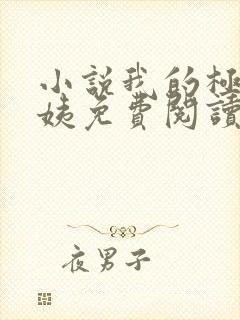 小說我的極
姨免費閱讀
夜男子